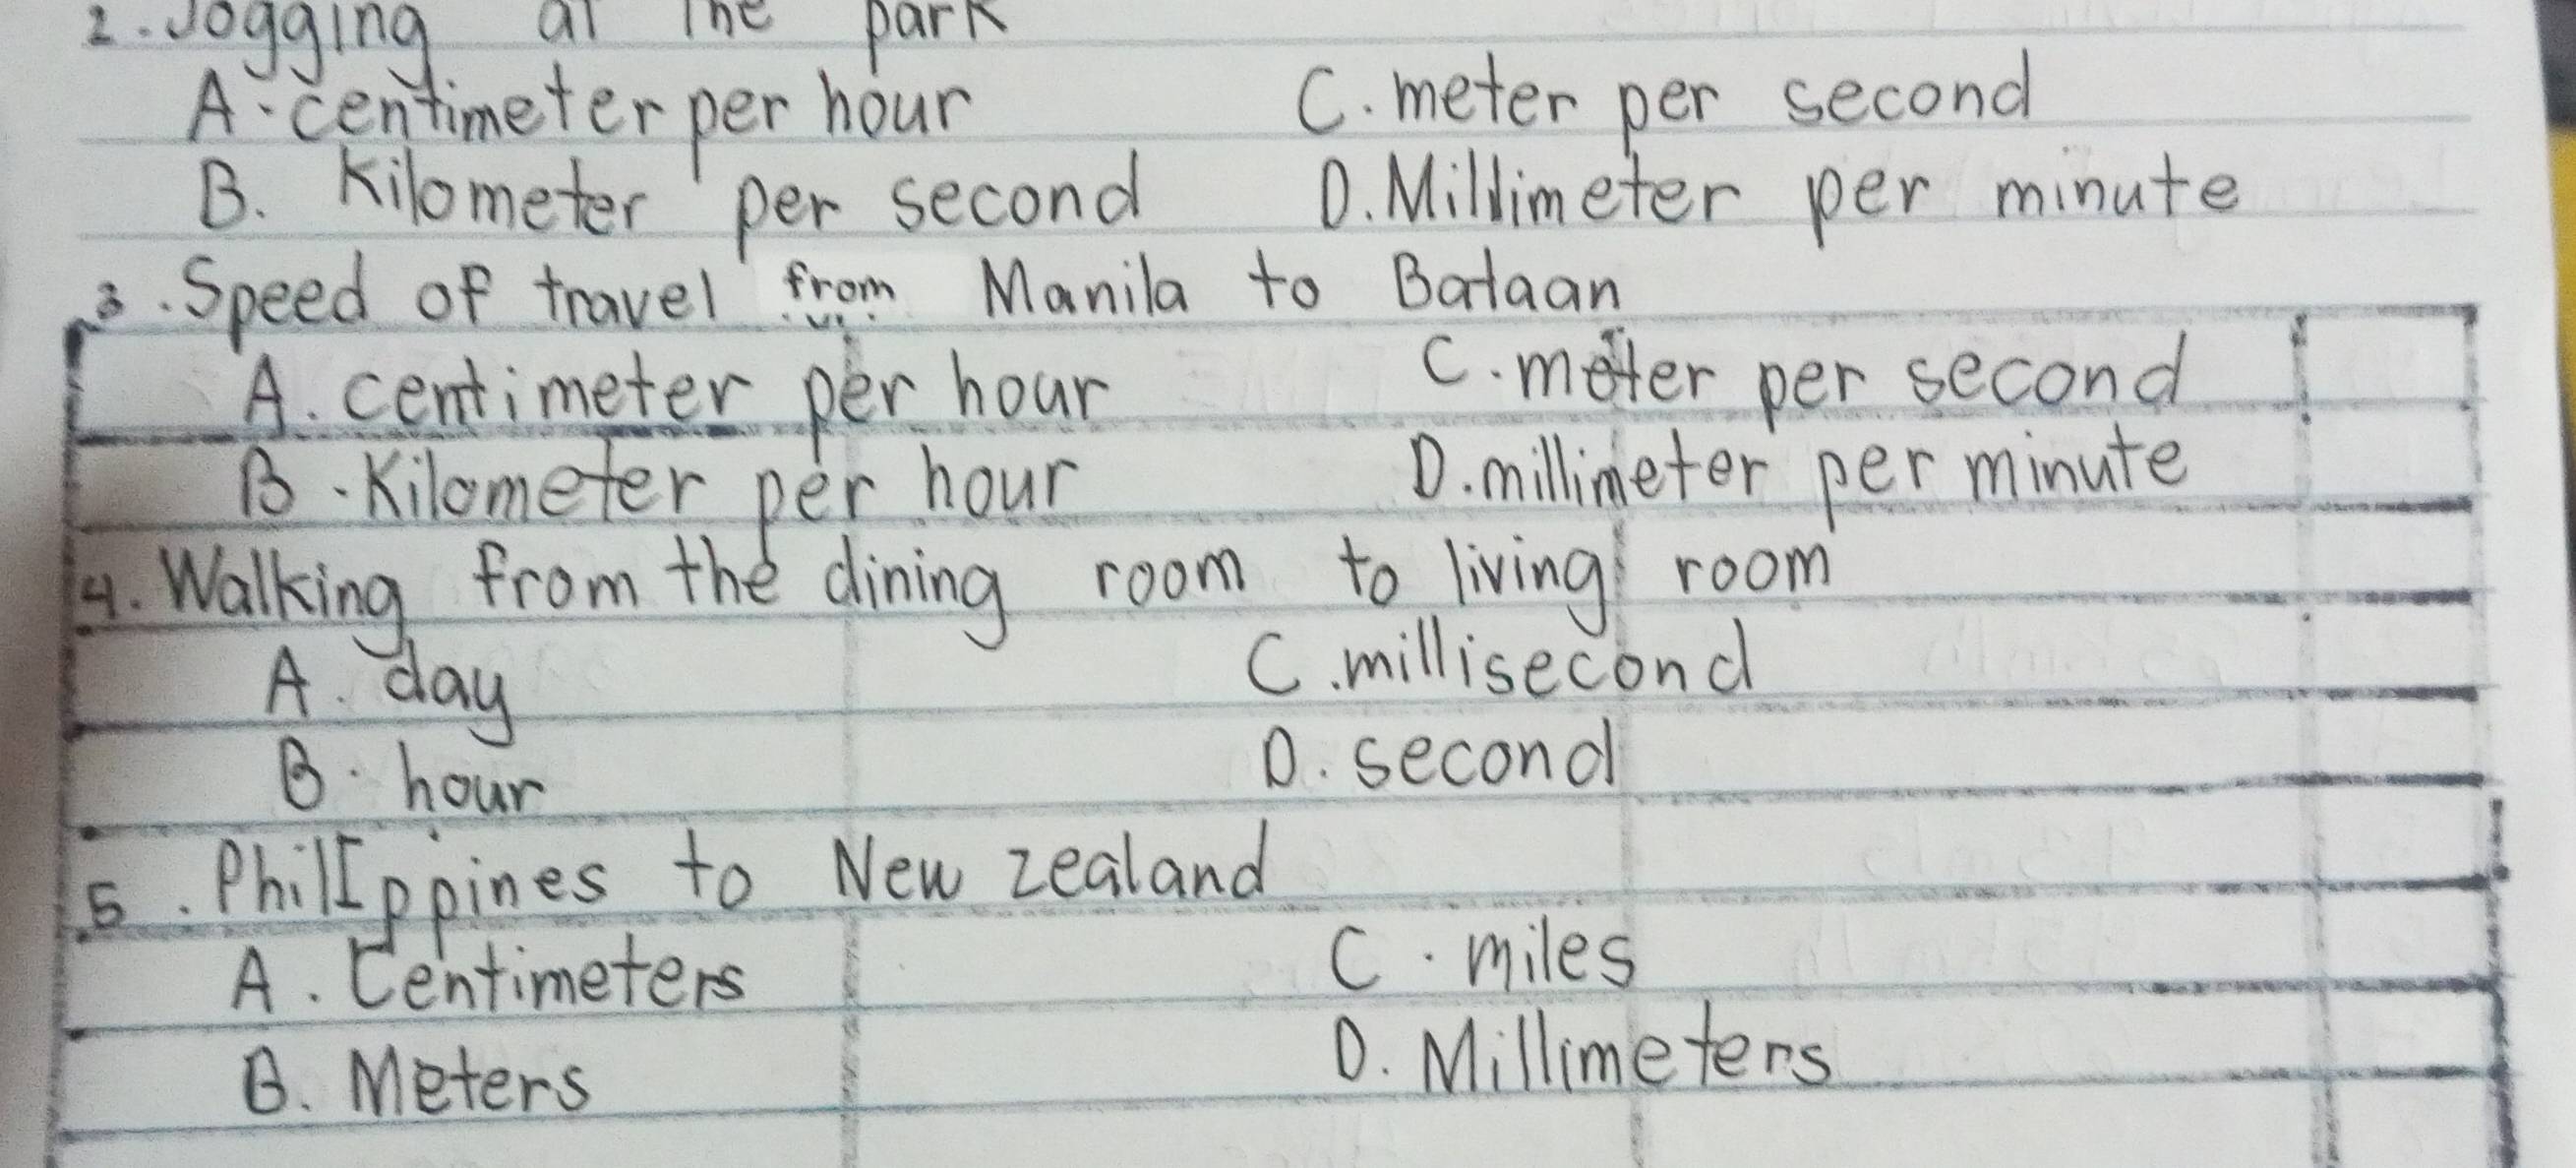 2. Jogging at the park
A. centimeter per hour C. meter per second
B. Kilometer per second D. Millimeter per minute
3. Speed of travel from Manila to Bataan
A. centimeter per hour C. meter per second
B. Kilometer per hour D. millimeter per minute
4. Walking from the dining room to living room
A. day C. millisecond
B. hour D. second
5. PhillIppines to New zealand
A. Centimeters C. miles
B. Meters D. Millimeters